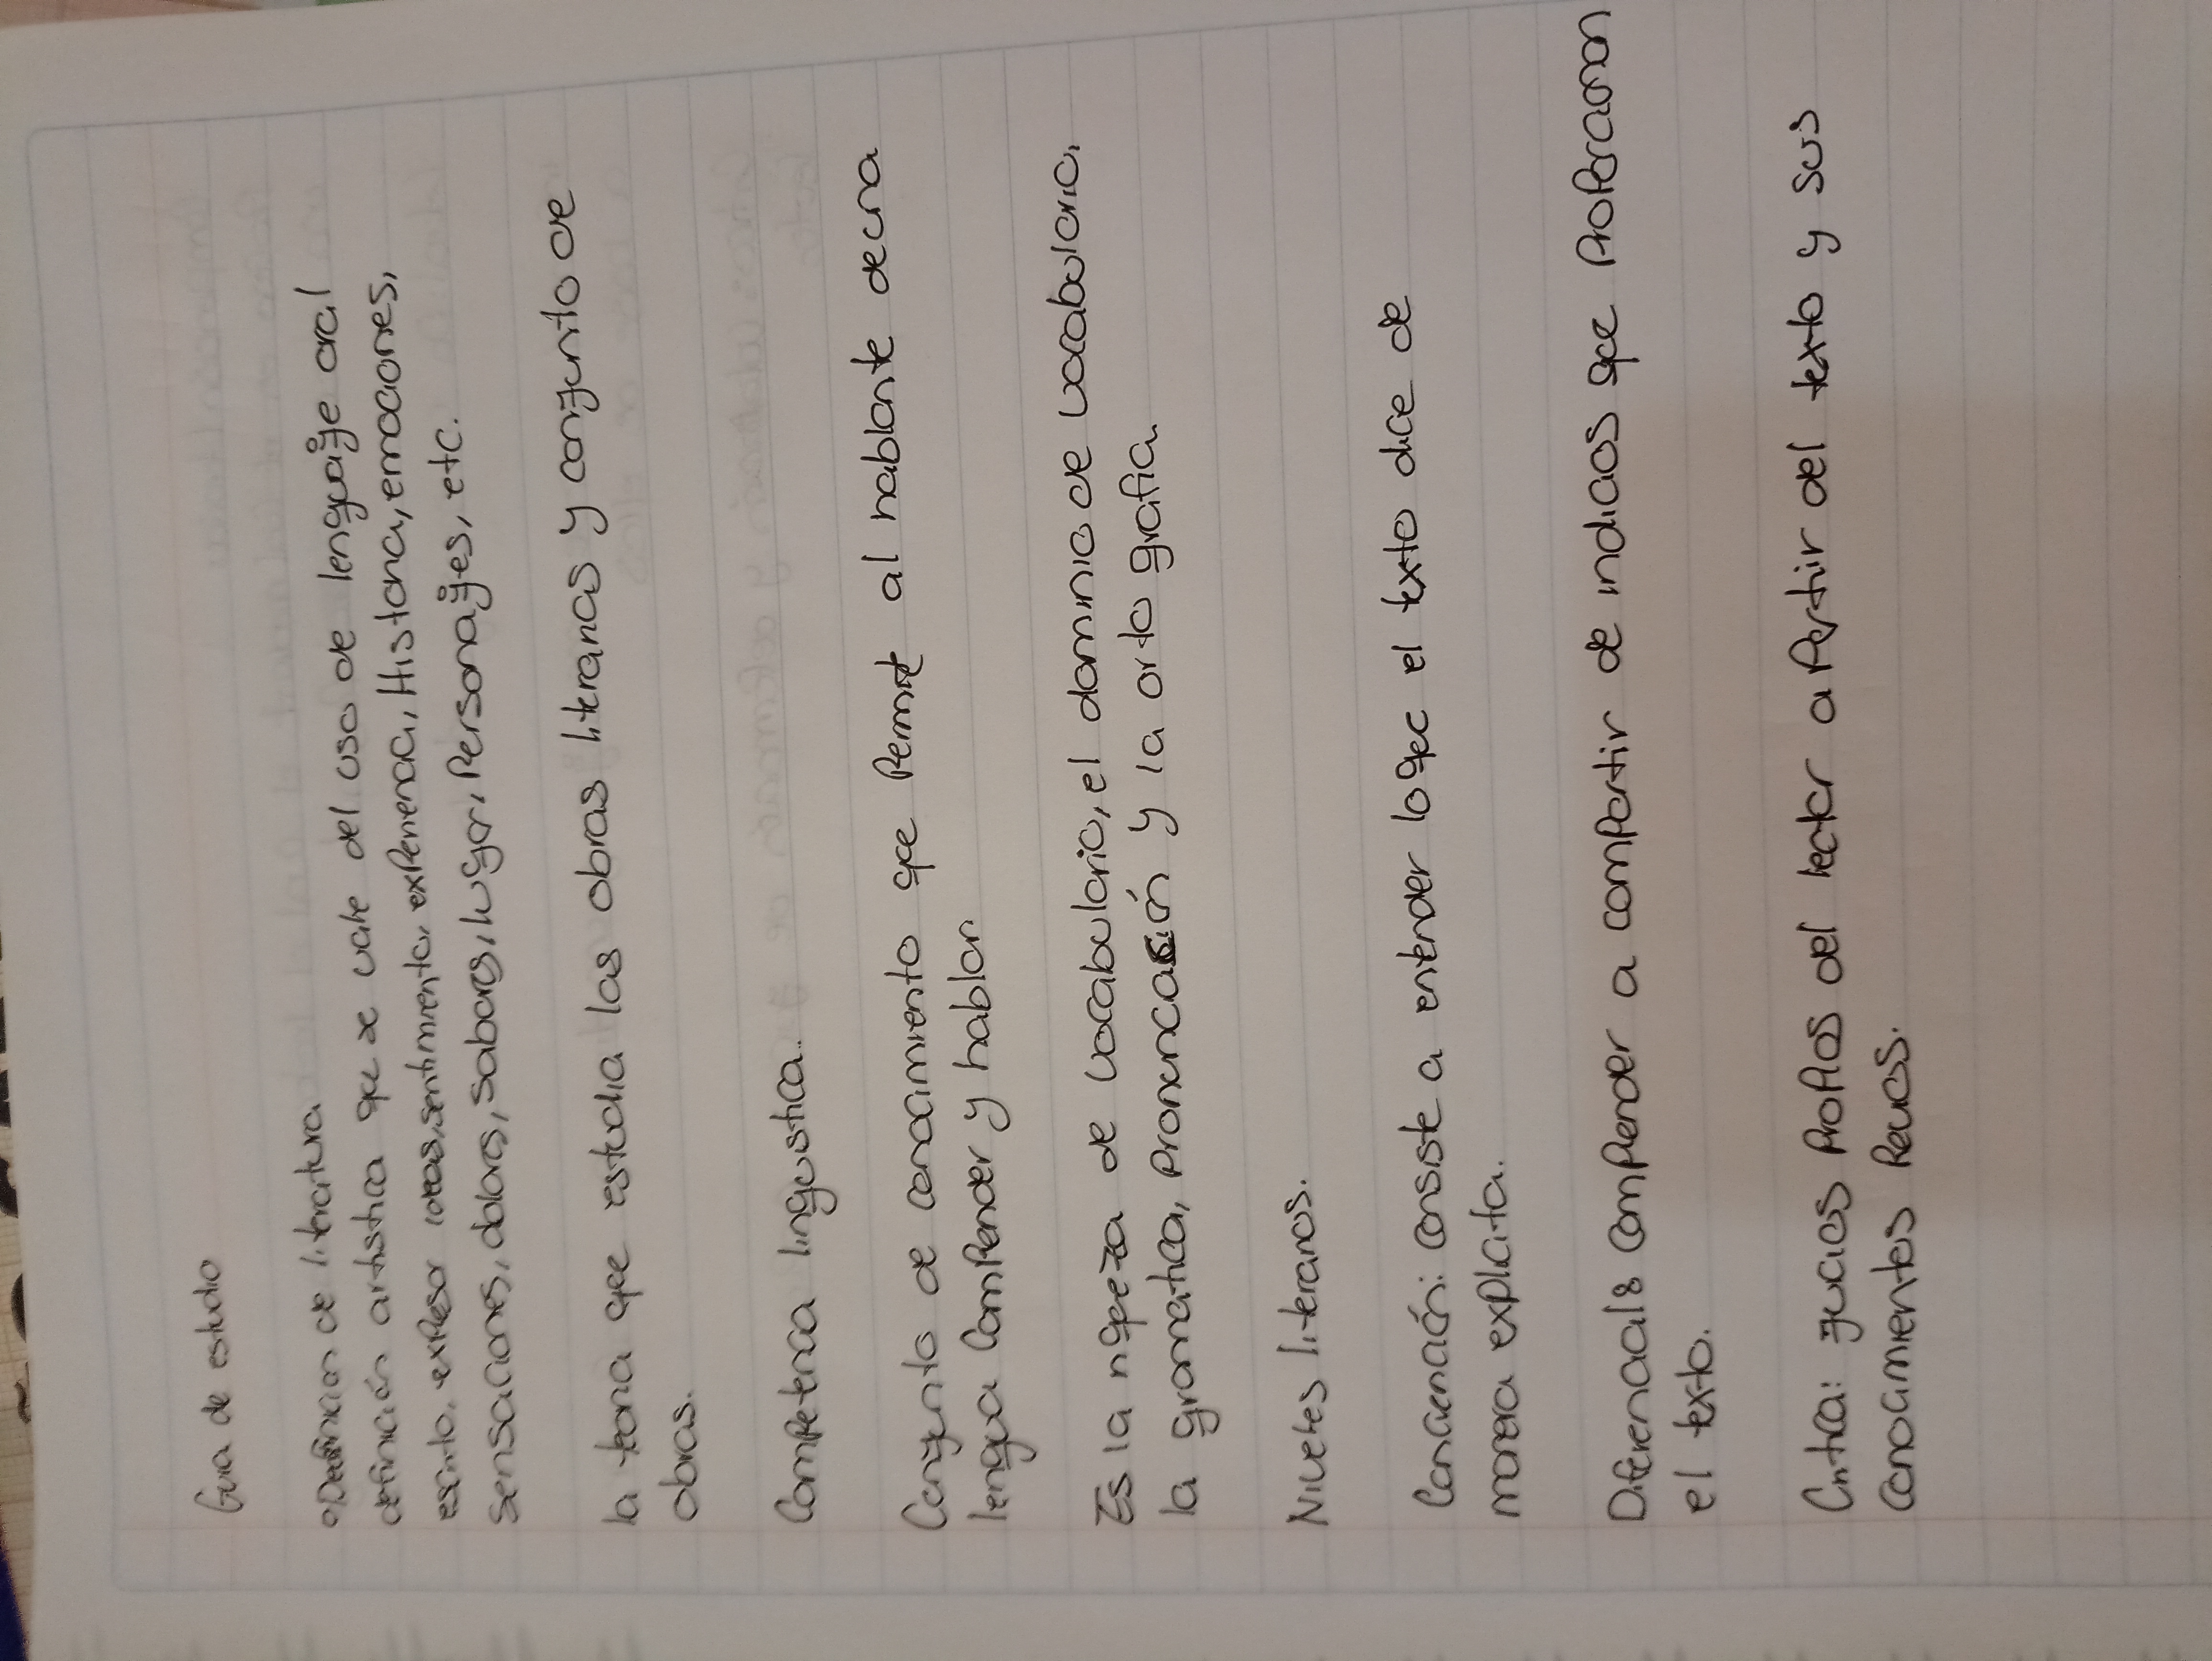 Guia de estudio
Definicion de literatura
definición artistica que se vale del uso de lenguaje oral
escrito, expresar ideas, sentimiento, experiencia, Historia, emociones,
sensaciones, dolores, sabores, lugar, Personajes, etc.
la toria que estudia las obras literarias y conjunto de
obras.
Competencia linguistica.
Conjunto de conocimiento que Permite al hablante de una
lengua comprender y hablar.
Es la riqueza de vocabulario, el dominio de vocabulario,
la gramatica, Pronuncación y la orto grafia.
Niveles literarios.
Conciención: consiste a entender lo que el texto dice de
manera explicita.
Diferencial: comprender a compartir de indicios que Proporcionan
el texto.
Critica: jucios Propios del lector a Partir del texto y sus
conocimientos Previos.